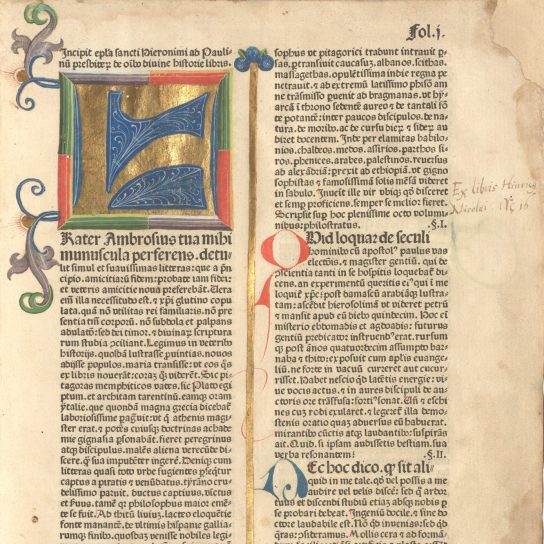 Fol.j.
Incipit epl̄a sancti Hieronimi ad Pauli-
nū presbiteꝝ de oĩbꝰ diuine historie libris.
F
Rater Ambrosius tua mihi
munuscula perferens. detu-
lit simul et suauissimas litteras: que a pn̄-
cipio. amicitiaꝝ fidem: probate iam fidei:
et veteris amicicie noua preferebāt. Uera
em̄ illa necessitudo est. ⁊ xp̄i glutino copu-
lata. quā nō vtilitas rei familiaris. nō pre-
sentia tm̄ corpoꝝ. nō subdola et palpans
adulatō: sed dei timor. ⁊ diuinaꝝ scriptura-
rum studia ɔciliant. Legimus in veteribꝰ
historijs. quosdā lustrasse ꝓuintias. nouos
adijsse populos. maria transisse: vt eos qͦs
ex libris nouerāt: coraꝫ qͦꝫ viderēt. Sic pi-
tagoras memphiticos vates. sic Plato egi-
ptum. et architam tarentinū. eamqꝫ oram
ytalie. que quondā magna grecia dicebaſ
laboriosissime ꝑagrauit: vt q̄ athenis magi-
ster erat. ⁊ potēs cuiusqꝫ doctrinas achade-
mie gignasia ꝑsonabāt. fieret peregrinus
atqꝫ discipulus. malēs aliena verecūde di-
scere. q̄ꝫ sua impudēter ingerē. Deniqꝫ cum
litteras quasi toto vrbe fugientes ꝑseq̄ret
captus a piratis ⁊ venūdatus. tyrāno cru-
delissimo paruit. ductus captiuus. victus
et ẜuus. tamē qꝛ philosophus maior emē-
te se fuit. Ad titū liuiuꝫ. lacteo eloquētie
fonte manantē. de vltimis hispanie gallia-
rumqꝫ finibꝰ. quosdaꝫ venisse nobiles legi-
sophus vt pitagorici tradunt intrauit p̄-
sas. ꝑtransiuit caucasuꝫ. albanos. scithas.
massagethas. opulētissima indie regna pe-
netrauit. ⁊ ad extremū latissimo phisō am-
ne trāsmisso ꝑuenit ad bragmanas. vt hy-
arcā ī throno sedentē aureo ⁊ de tantali fō-
te potantē: inter paucos discipulos. de na-
tura. de moribꝰ. ac de cursu dieꝝ ⁊ sideꝝ au-
diret docentem. Inde per elamitas babilo-
nios. chaldeos. medos. assirios. parthos si-
ros. phenices. arabes. palestinos. reuersus
ad alexādriā: ꝑrexit ad ethiopiā. vt gigno-
sophistas ⁊ famosissimā solis mēsā videret
in sabulo. Inuenit ille vir vbiqꝫ qd̓ disceret
et semꝑ proficiens. semper se melior fieret.
Scripsit suꝑ hoc plenissime octo volumi-
nibus: philostratus. §.I.
Quid loquar de seculi
hominibꝰ cū apostolus paulus vas
electōis. ⁊ magister gentiū. qui de
ɔscientia tanti in se hospitis loquebaſ di-
cens. an experimentū queritis eiꝰ qui ī me
loquiť xp̄c: post damascū arabiāqꝫ lustra-
tam: ascēdit hierosolimā vt videret petrū
⁊ mansit apud eū diebꝰ quindecim. Hoc em̄
misterio ebdomadis et agdoadis: futurus
gentiū predicator instruendꝰ erat. rursum-
qꝫ post annos quatuordecim assumpto bar-
naba ⁊ thito: exposuit cum aplis euange-
liū. ne forte in vacuū curreret aut cucur-
risset. Habet nescio qd̓ latētis energie: vi-
ue vocis actus. ⁊ in aures discipuli de auc-
toris ore trāsfusa: fortiꝰ sonat. Un̄ ⁊ eschi-
nes cum rodi exularet. ⁊ legereť illa demo-
stenis oratio quaꝫ aduersus eū habuerat.
mirantibꝰ cūctis atqꝫ laudantibꝰ: suspirās
ait. Quid. si ipsam audissetis bestiam. sua
verba resonantem! §.II.
Nec hoc dico. ꝙ sit ali-
quid in me tale. qd̓ vel possis a me
audire vel velis discē: sed q̄ ardor
tuus et discendi studiū etiā absqꝫ nobis ꝑ
se probari debeat. Ingeniū docile. ⁊ sine do-
ctore laudabile est. Nō qd̓ inuenias: sed qd̓
q̄ras: ɔsideramꝰ. Mollis cera ⁊ ad forman-
Ex libris Hinrici
Nicolai